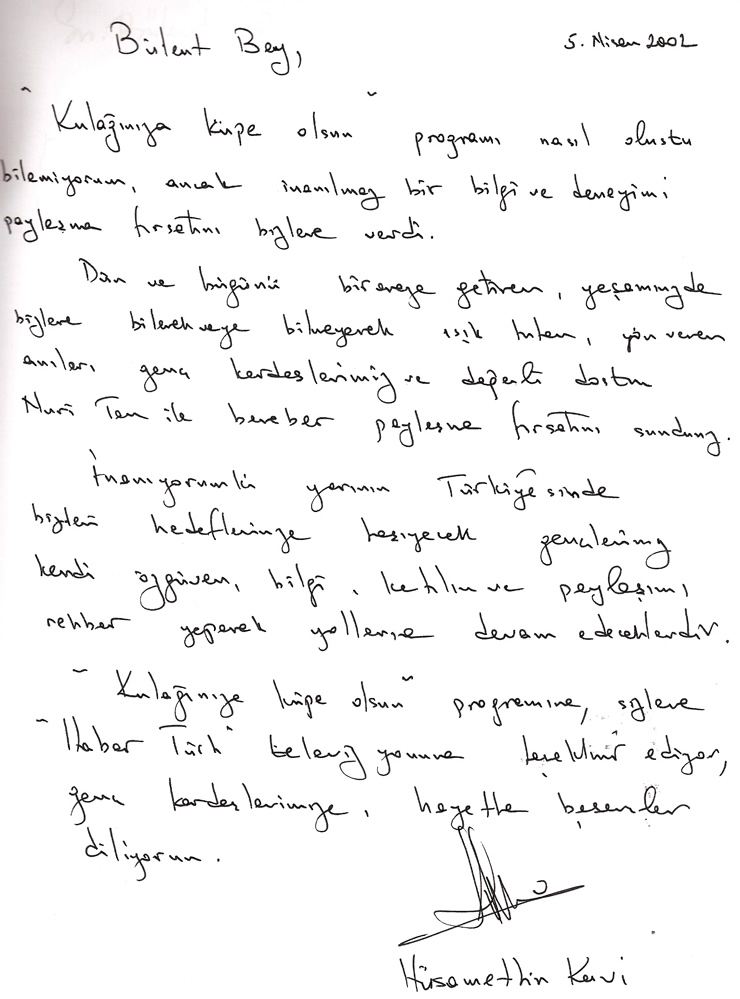 Bülent Bey,
5. Nisan 2002
"Kulağınıza küpe olsun" programı nasıl oluştu
bilemiyorum, ancak inanılmaz bir bilgi ve deneyimi
paylaşma fırsatını bizlere verdi.
Dün ve bugünü bir araya getiren, yaşamımızda
bizlere bilerek veya bilmeyerek ışık tutan, yön veren
anıları genç kardeşlerimiz ve değerli dostum
Nuri Tan ile beraber paylaşma fırsatını sundunuz.
İnanıyorum ki yarının Türkiyesinde
bizleri hedeflerimize taşıyacak gençlerimiz
kendi özgüven, bilgi, katılım ve paylaşımı
rehber yaparak yollarına devam edeceklerdir.
"Kulağınıza küpe olsun" programına, sizlere
"Haber Türk" televizyonuna teşekkür ediyor,
genç kardeşlerimize, hayatta başarılar
diliyorum.
Hüsamettin Kavi